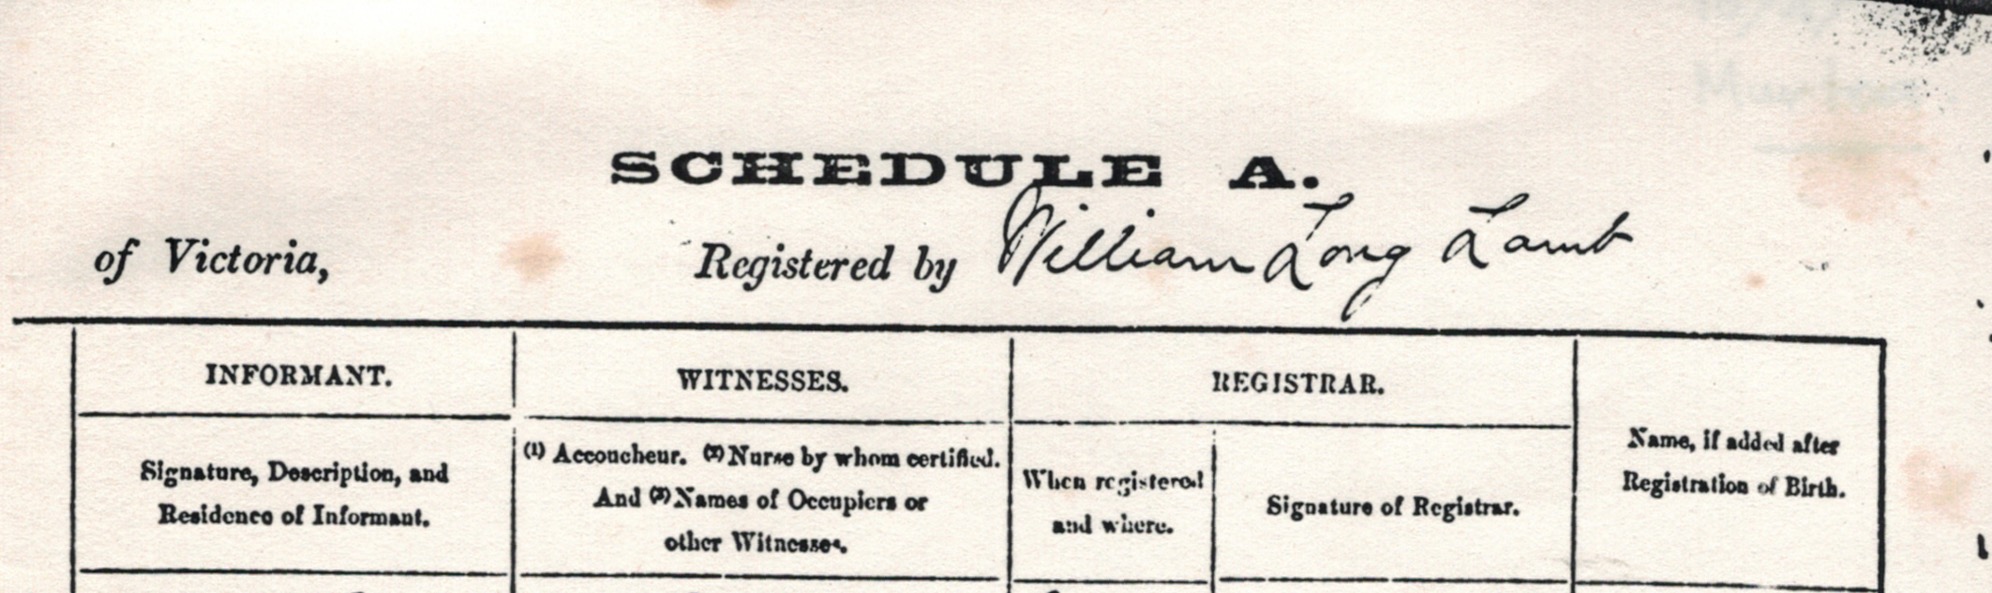 SCHEDULE A.
of Victoria, Registered by William Long Lamb
INFORMANT. WITNESSES. REGISTRAR.
Signature, Description, and
Residence of Informant.
(1) Accoucheur. (2) Nurse by whom certified.
And (3) Names of Occupiers or
other Witnesses.
When registered
and where.
Signature of Registrar.
Name, if added after
Registration of Birth.